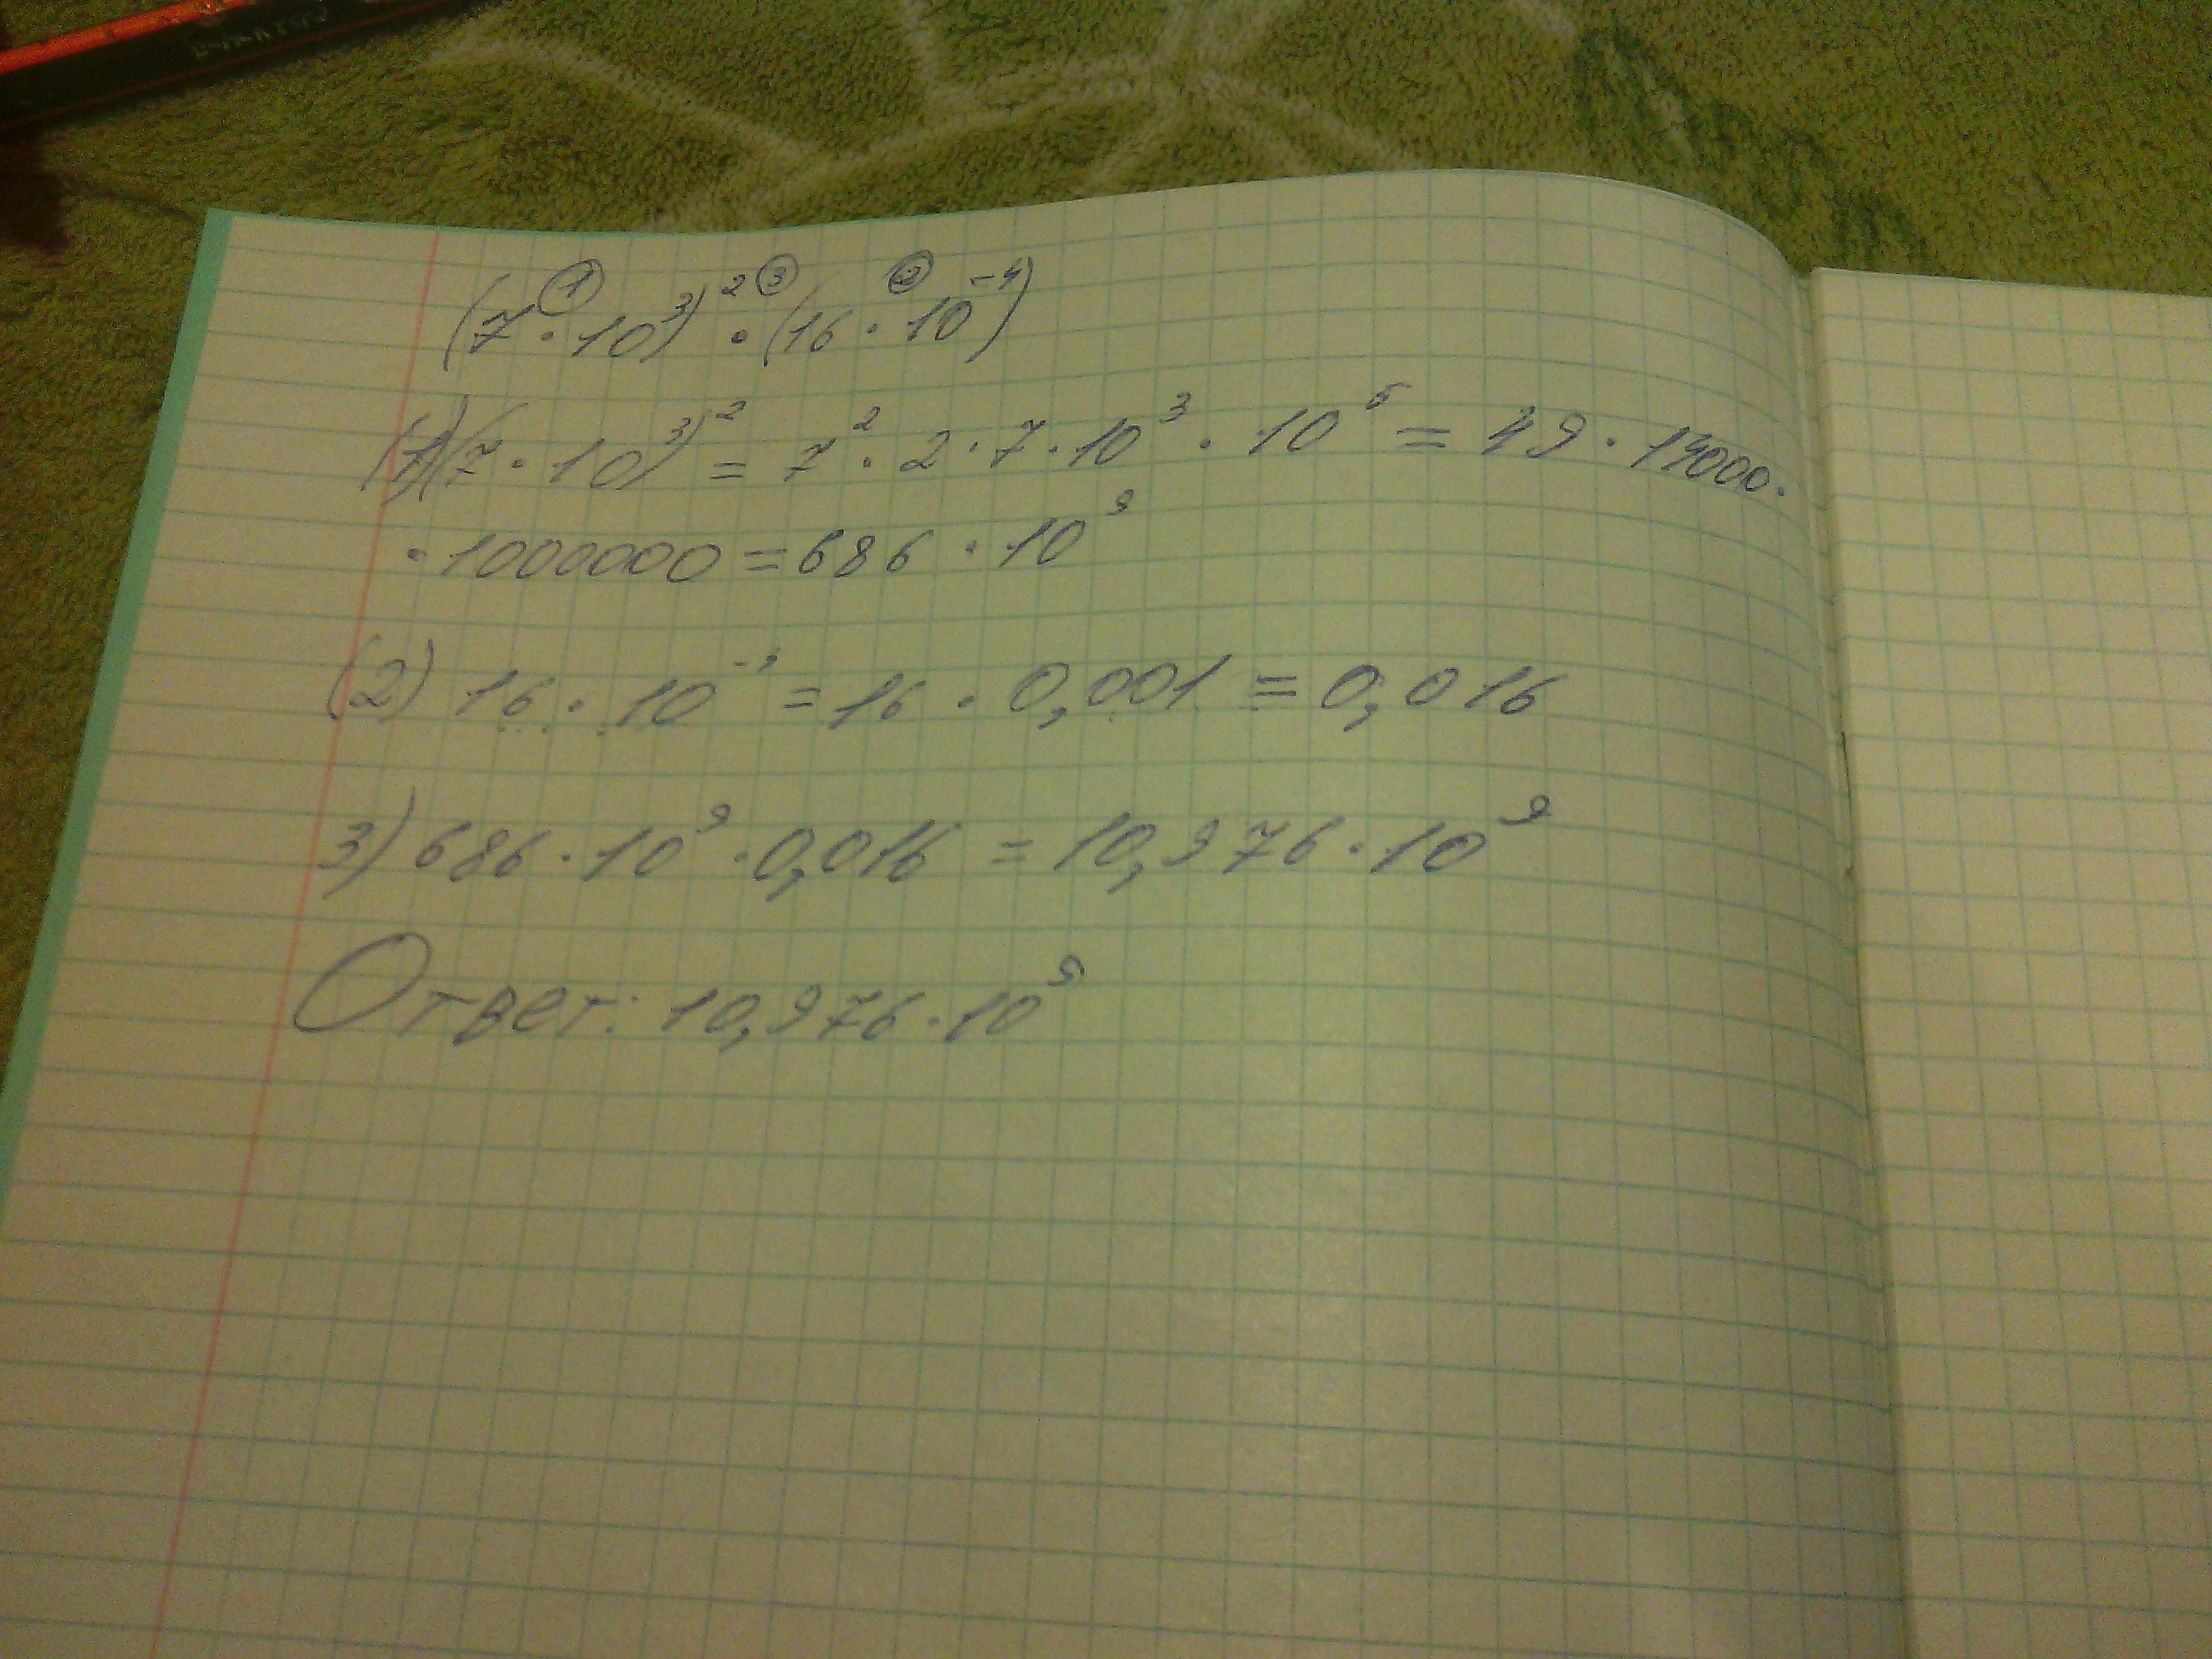 (7 · 10³)² · (16 · 10⁻⁴)
① ③ ②
(1) (7 · 10³)² = 7² · 2 · 7 · 10³ · 10⁶ = 49 · 14000 ·
· 1000000 = 686 · 10⁹
(2) 16 · 10⁻³ = 16 · 0,001 = 0,016
3) 686 · 10⁹ · 0,016 = 10,976 · 10⁹
Ответ: 10,976 · 10⁹